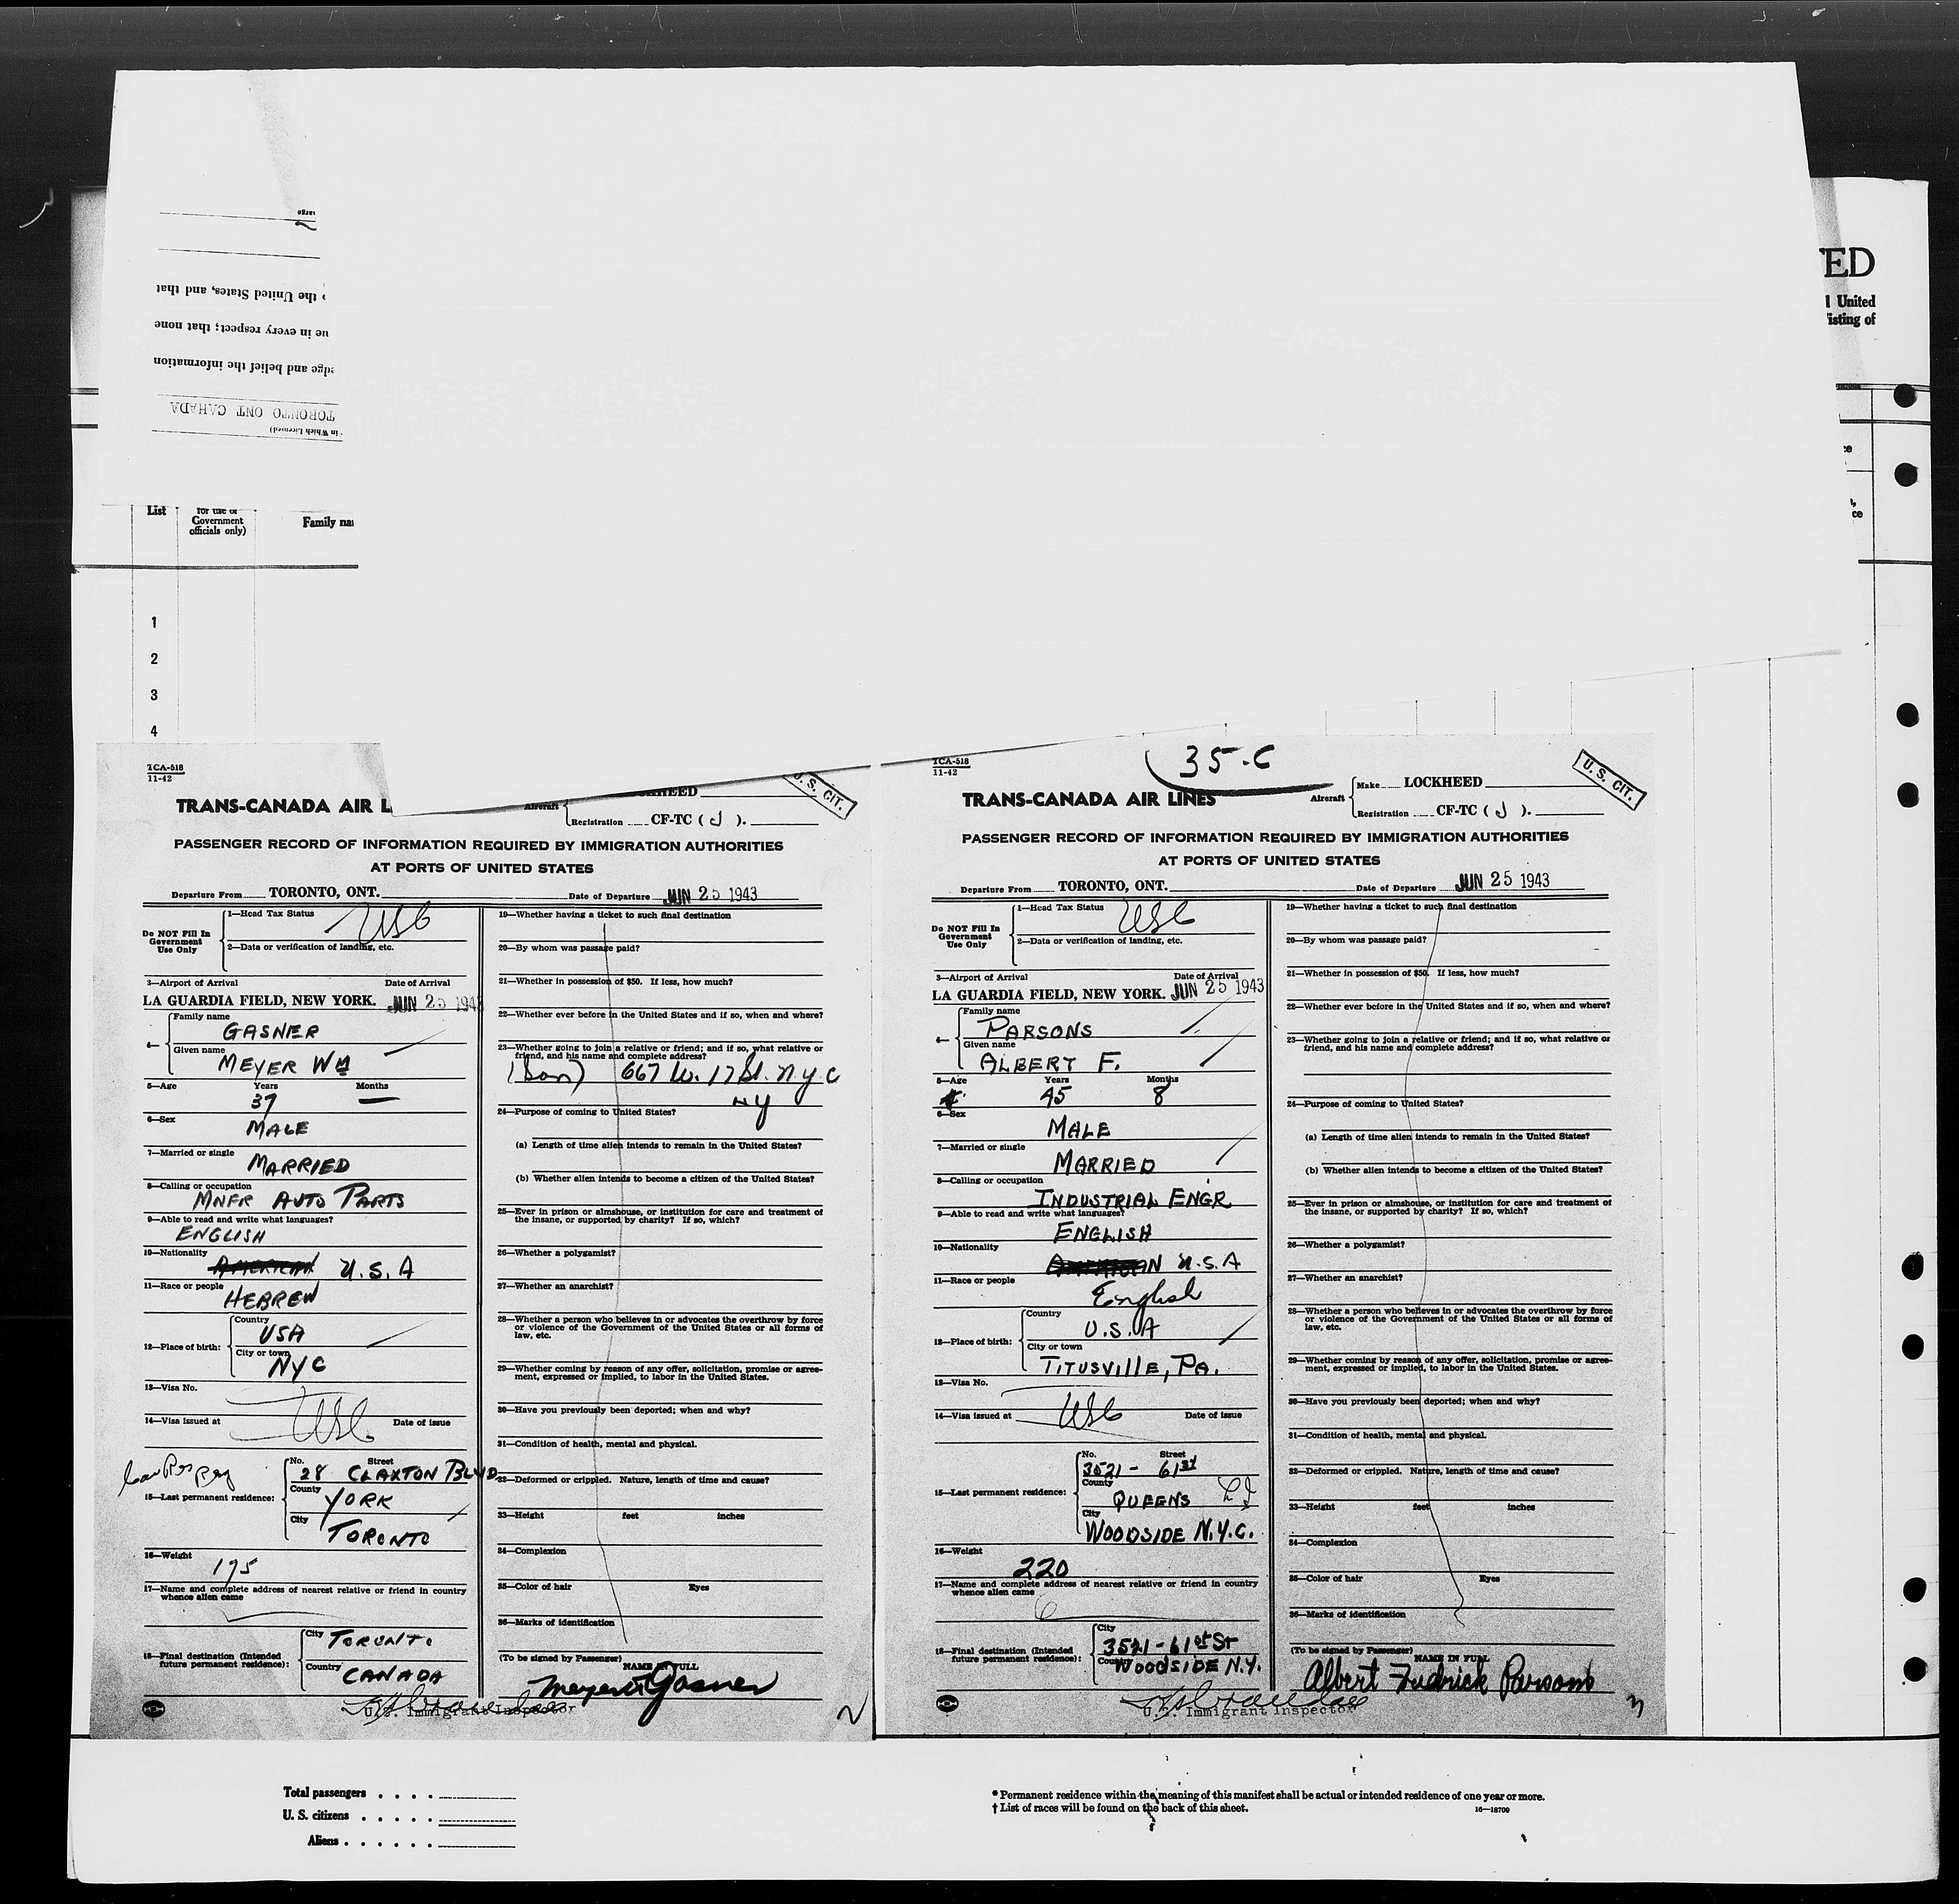 arge
o the United States, and that
ue in every respect; that none
edge and belief the information
TORONTO ONT CANADA
in Which Licensed)
TED
l United
isting of
List
for use of
Government
officials only)
Family na
ce
1
2
3
4
TCA-518
11-42
TRANS-CANADA AIR L
Aircraft
KHEED
Registration CF-TC ( J ).
U. S. CIT.
PASSENGER RECORD OF INFORMATION REQUIRED BY IMMIGRATION AUTHORITIES
AT PORTS OF UNITED STATES
Departure From TORONTO, ONT. Date of Departure JUN 25 1943
Do NOT Fill In
Government
Use Only
1—Head Tax Status USC
2—Data or verification of landing, etc.
3—Airport of Arrival Date of Arrival
LA GUARDIA FIELD, NEW YORK. JUN 25 1943
4—
Family name
GASNER
Given name
MEYER WM
5—Age Years Months
37 —
6—Sex
MALE
7—Married or single
MARRIED
8—Calling or occupation
MNFR AUTO PARTS
9—Able to read and write what languages?
ENGLISH
10—Nationality
AMERICAN U.S.A
11—Race or people
HEBREW
12—Place of birth:
Country
USA
City or town
NYC
13—Visa No.
USC
14—Visa issued at Date of issue
15—Last permanent residence:
No. Street
28 CLAXTON BLVD
County
YORK
City
TORONTO
16—Weight
175
17—Name and complete address of nearest relative or friend in country
whence alien came
18—Final destination (Intended
future permanent residence):
City TORONTO
Country CANADA
U.S. Immigrant Inspector
19—Whether having a ticket to such final destination
20—By whom was passage paid?
21—Whether in possession of $50. If less, how much?
22—Whether ever before in the United States and if so, when and where?
23—Whether going to join a relative or friend; and if so, what relative or
friend, and his name and complete address?
667 W. 17 St. N.Y.C
NY
24—Purpose of coming to United States?
(a) Length of time alien intends to remain in the United States?
(b) Whether alien intends to become a citizen of the United States?
25—Ever in prison or almshouse, or institution for care and treatment of
the insane, or supported by charity? If so, which?
26—Whether a polygamist?
27—Whether an anarchist?
28—Whether a person who believes in or advocates the overthrow by force
or violence of the Government of the United States or all forms of
law, etc.
29—Whether coming by reason of any offer, solicitation, promise or agree-
ment, expressed or implied, to labor in the United States.
30—Have you previously been deported; when and why?
31—Condition of health, mental and physical.
32—Deformed or crippled. Nature, length of time and cause?
33—Height feet inches
34—Complexion
35—Color of hair Eyes
36—Marks of identification
(To be signed by Passenger)
NAME IN FULL
Meyer W Gasner
2
35-C
TCA-518
11-42
TRANS-CANADA AIR LINES
Aircraft
Make LOCKHEED
Registration CF-TC ( J ).
U. S. CIT.
PASSENGER RECORD OF INFORMATION REQUIRED BY IMMIGRATION AUTHORITIES
AT PORTS OF UNITED STATES
Departure From TORONTO, ONT. Date of Departure JUN 25 1943
Do NOT Fill In
Government
Use Only
1—Head Tax Status USC
2—Data or verification of landing, etc.
3—Airport of Arrival Date of Arrival
LA GUARDIA FIELD, NEW YORK. JUN 25 1943
4—
Family name
PARSONS
Given name
ALBERT F.
5—Age Years Months
45 8
6—Sex
MALE
7—Married or single
MARRIED
8—Calling or occupation
INDUSTRIAL ENGR
9—Able to read and write what languages?
ENGLISH
10—Nationality
AMERICAN U.S.A
11—Race or people
English
12—Place of birth:
Country
U.S.A
City or town
TITUSVILLE, PA.
13—Visa No.
USC
14—Visa issued at Date of issue
15—Last permanent residence:
No. Street
3521 - 61st
County
QUEENS LI
City
WOODSIDE N.Y.C.
16—Weight
220
17—Name and complete address of nearest relative or friend in country
whence alien came
18—Final destination (Intended
future permanent residence):
City
3521-61st St
Country
WOODSIDE N.Y.
U.S. Immigrant Inspector
19—Whether having a ticket to such final destination
20—By whom was passage paid?
21—Whether in possession of $50. If less, how much?
22—Whether ever before in the United States and if so, when and where?
23—Whether going to join a relative or friend; and if so, what relative or
friend, and his name and complete address?
24—Purpose of coming to United States?
(a) Length of time alien intends to remain in the United States?
(b) Whether alien intends to become a citizen of the United States?
25—Ever in prison or almshouse, or institution for care and treatment of
the insane, or supported by charity? If so, which?
26—Whether a polygamist?
27—Whether an anarchist?
28—Whether a person who believes in or advocates the overthrow by force
or violence of the Government of the United States or all forms of
law, etc.
29—Whether coming by reason of any offer, solicitation, promise or agree-
ment, expressed or implied, to labor in the United States.
30—Have you previously been deported; when and why?
31—Condition of health, mental and physical.
32—Deformed or crippled. Nature, length of time and cause?
33—Height feet inches
34—Complexion
35—Color of hair Eyes
36—Marks of identification
(To be signed by Passenger)
NAME IN FULL
Albert Fredrick Parsons
3
Total passengers . . . .
U. S. citizens . . . . .
Aliens . . . . . .
* Permanent residence within the meaning of this manifest shall be actual or intended residence of one year or more.
† List of races will be found on the back of this sheet.
16—18709